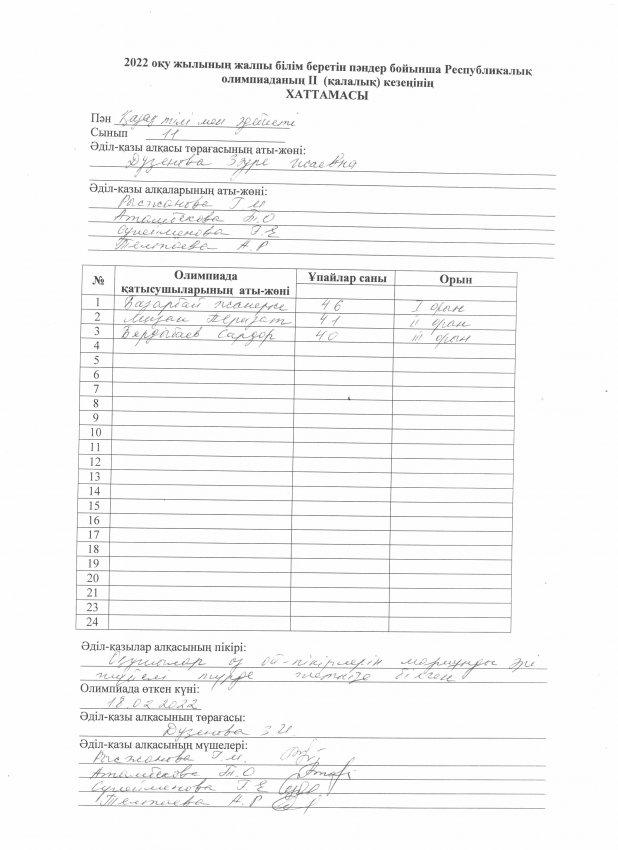 2022 оқу жылының жалпы білім беретін пәндер бойынша Республикалық
олимпиаданың ІІ (қалалық) кезеңінің
ХАТТАМАСЫ
Пән Қазақ тілі мен әдебиеті
Сынып 11
Әділ-қазы алқасы төрағасының аты-жөні:
Дузенова Зәуре Исаевна
Әділ-қазы алқаларының аты-жөні:
Рысжанова Г М
Аталыкова Б.О
Сулейменова Г.Е
Телтаева А Р
№ Олимпиада қатысушыларының аты-жөні Ұпайлар саны Орын
1 Назарбай Жанерке 46 І орын
2 41 ІІ орын
3 Бердібаев Сардор 40 ІІІ орын
4
5
6
7
8
9
10
11
12
13
14
15
16
17
18
19
20
21
23
24
Әділ-қазылар алқасының пікірі:
Оқушылар өз ой-пікірлерін мазмұнды әрі
жүйелі түрде жеткізе білген
Олимпиада өткен күні:
18.02.2022
Әділ-қазы алқасының төрағасы:
Дузенова З.И.
Әділ-қазы алқасының мүшелері:
Рысжанова Г М.
Б.О
Сулейменова Г.Е
Телтаева А.Р